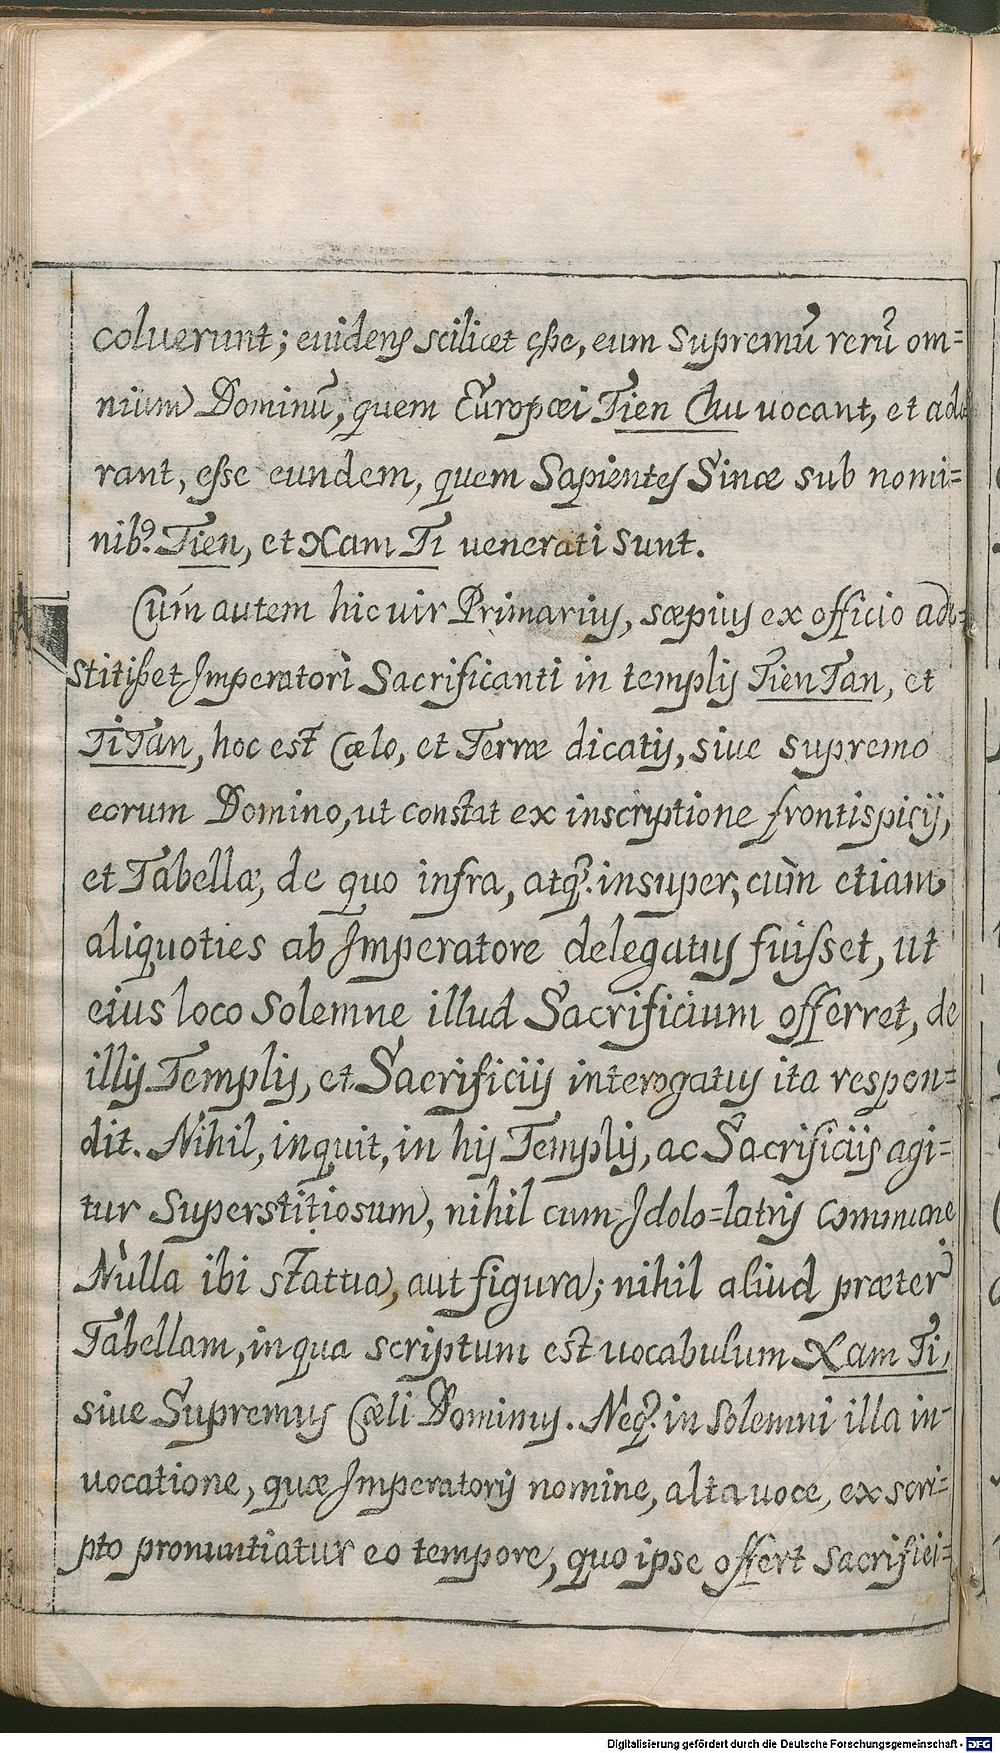 coluerunt; euidens scilicet esse, eum Supremũ rerũ om=
nium Dominũ, quem Europæi Tien Chu uocant, et ado
rant, esse eundem, quem Sapientes Sinæ sub nomi=
nib9. Tien, et Xam Ti uenerati sunt.
Cum autem hic uir Primarius, sæpius ex officio ad=
stitisset Imperatori Sacrificanti in templis Tien Tan, et
Ti Tan, hoc est Cælo, et Terræ dicatis, siue supremo
eorum Domino, ut constat ex inscriptione frontispicij,
et Tabellæ, de quo infra, atq3. insuper, cùm etiam
aliquoties ab Imperatore delegatus fuisset, ut
eius loco Solemne illud Sacrificium offerret, de
illis Templis, et Sacrificijs interogatus ita respon=
dit. Nihil, inquit, in his Templis, ac Sacrificijs agi=
tur Superstitiosum, nihil cum Idolo=latris Commune
Nulla ibi stattua, aut figura; nihil aliud præter
Tabellam, in qua scriptum est uocabulum Xam Ti,
siue Supremus Cæli Dominus. Neq3. in Solemni illa in-
uocatione, quæ Imperatoris nomine, alta uoce, ex scri=
pto pronuntiatur eo tempore, quo ipse offert sacrifici=
Digitalisierung gefördert durch die Deutsche Forschungsgemeinschaft - DFG